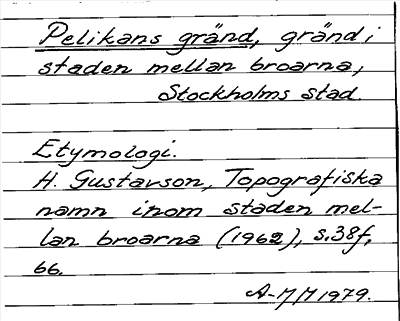 Pelikans gränd, gränd i
staden mellan broarna,
Stockholms stad.
Etymologi.
H. Gustavson, Topografiska
namn inom staden mel-
lan broarna (1962), s.38f,
66.
A-M M 1979.